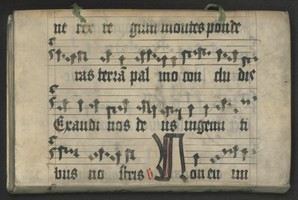 ne rce re giran montes ponde
ras terrā pal mo con clu dis
Exaudi nos de us ingemi ti
bus no stris